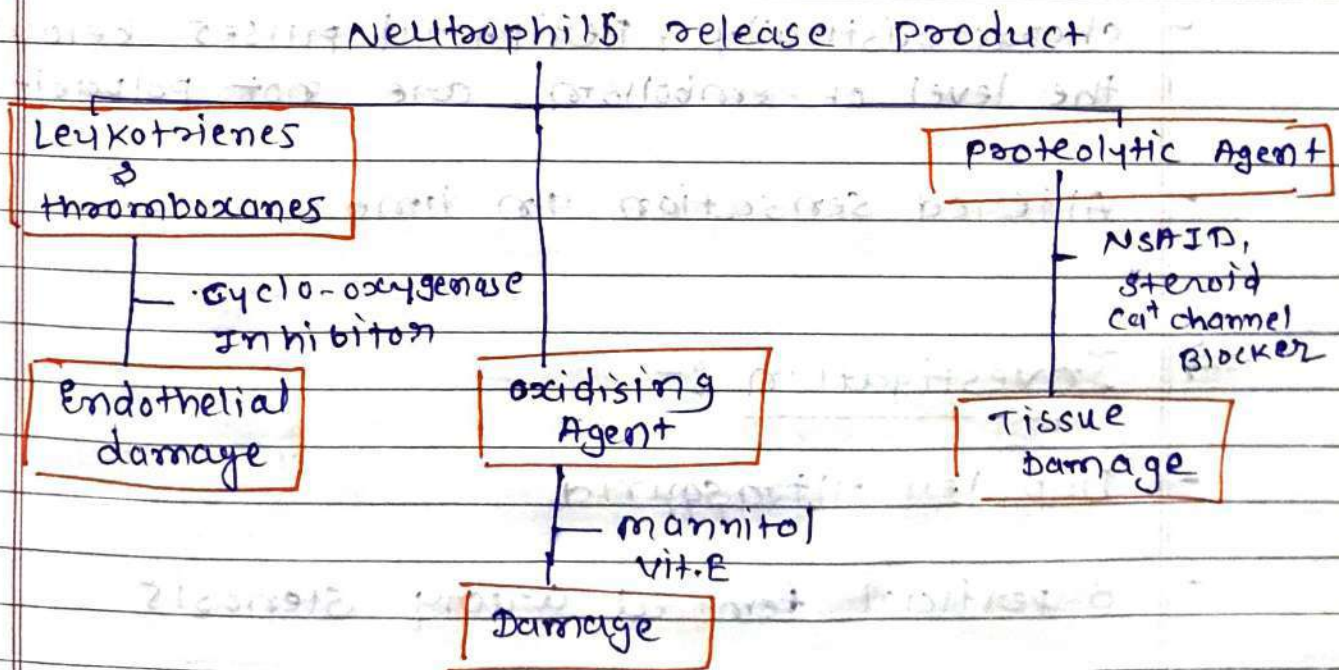 Neutrophils release product
Leukotrienes
&
thromboxanes
cyclo-oxygenase
Inhibitor
Endothelial
damage
oxidising
Agent
mannitol
vit.E
Damage
proteolytic Agent
NSAID,
steroid
Ca+ channel
Blocker
Tissue
Damage